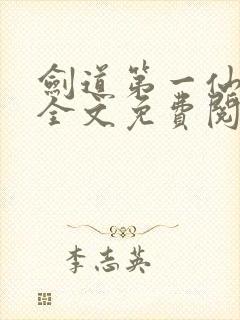 劍道第一仙
全文免費閱
李志英